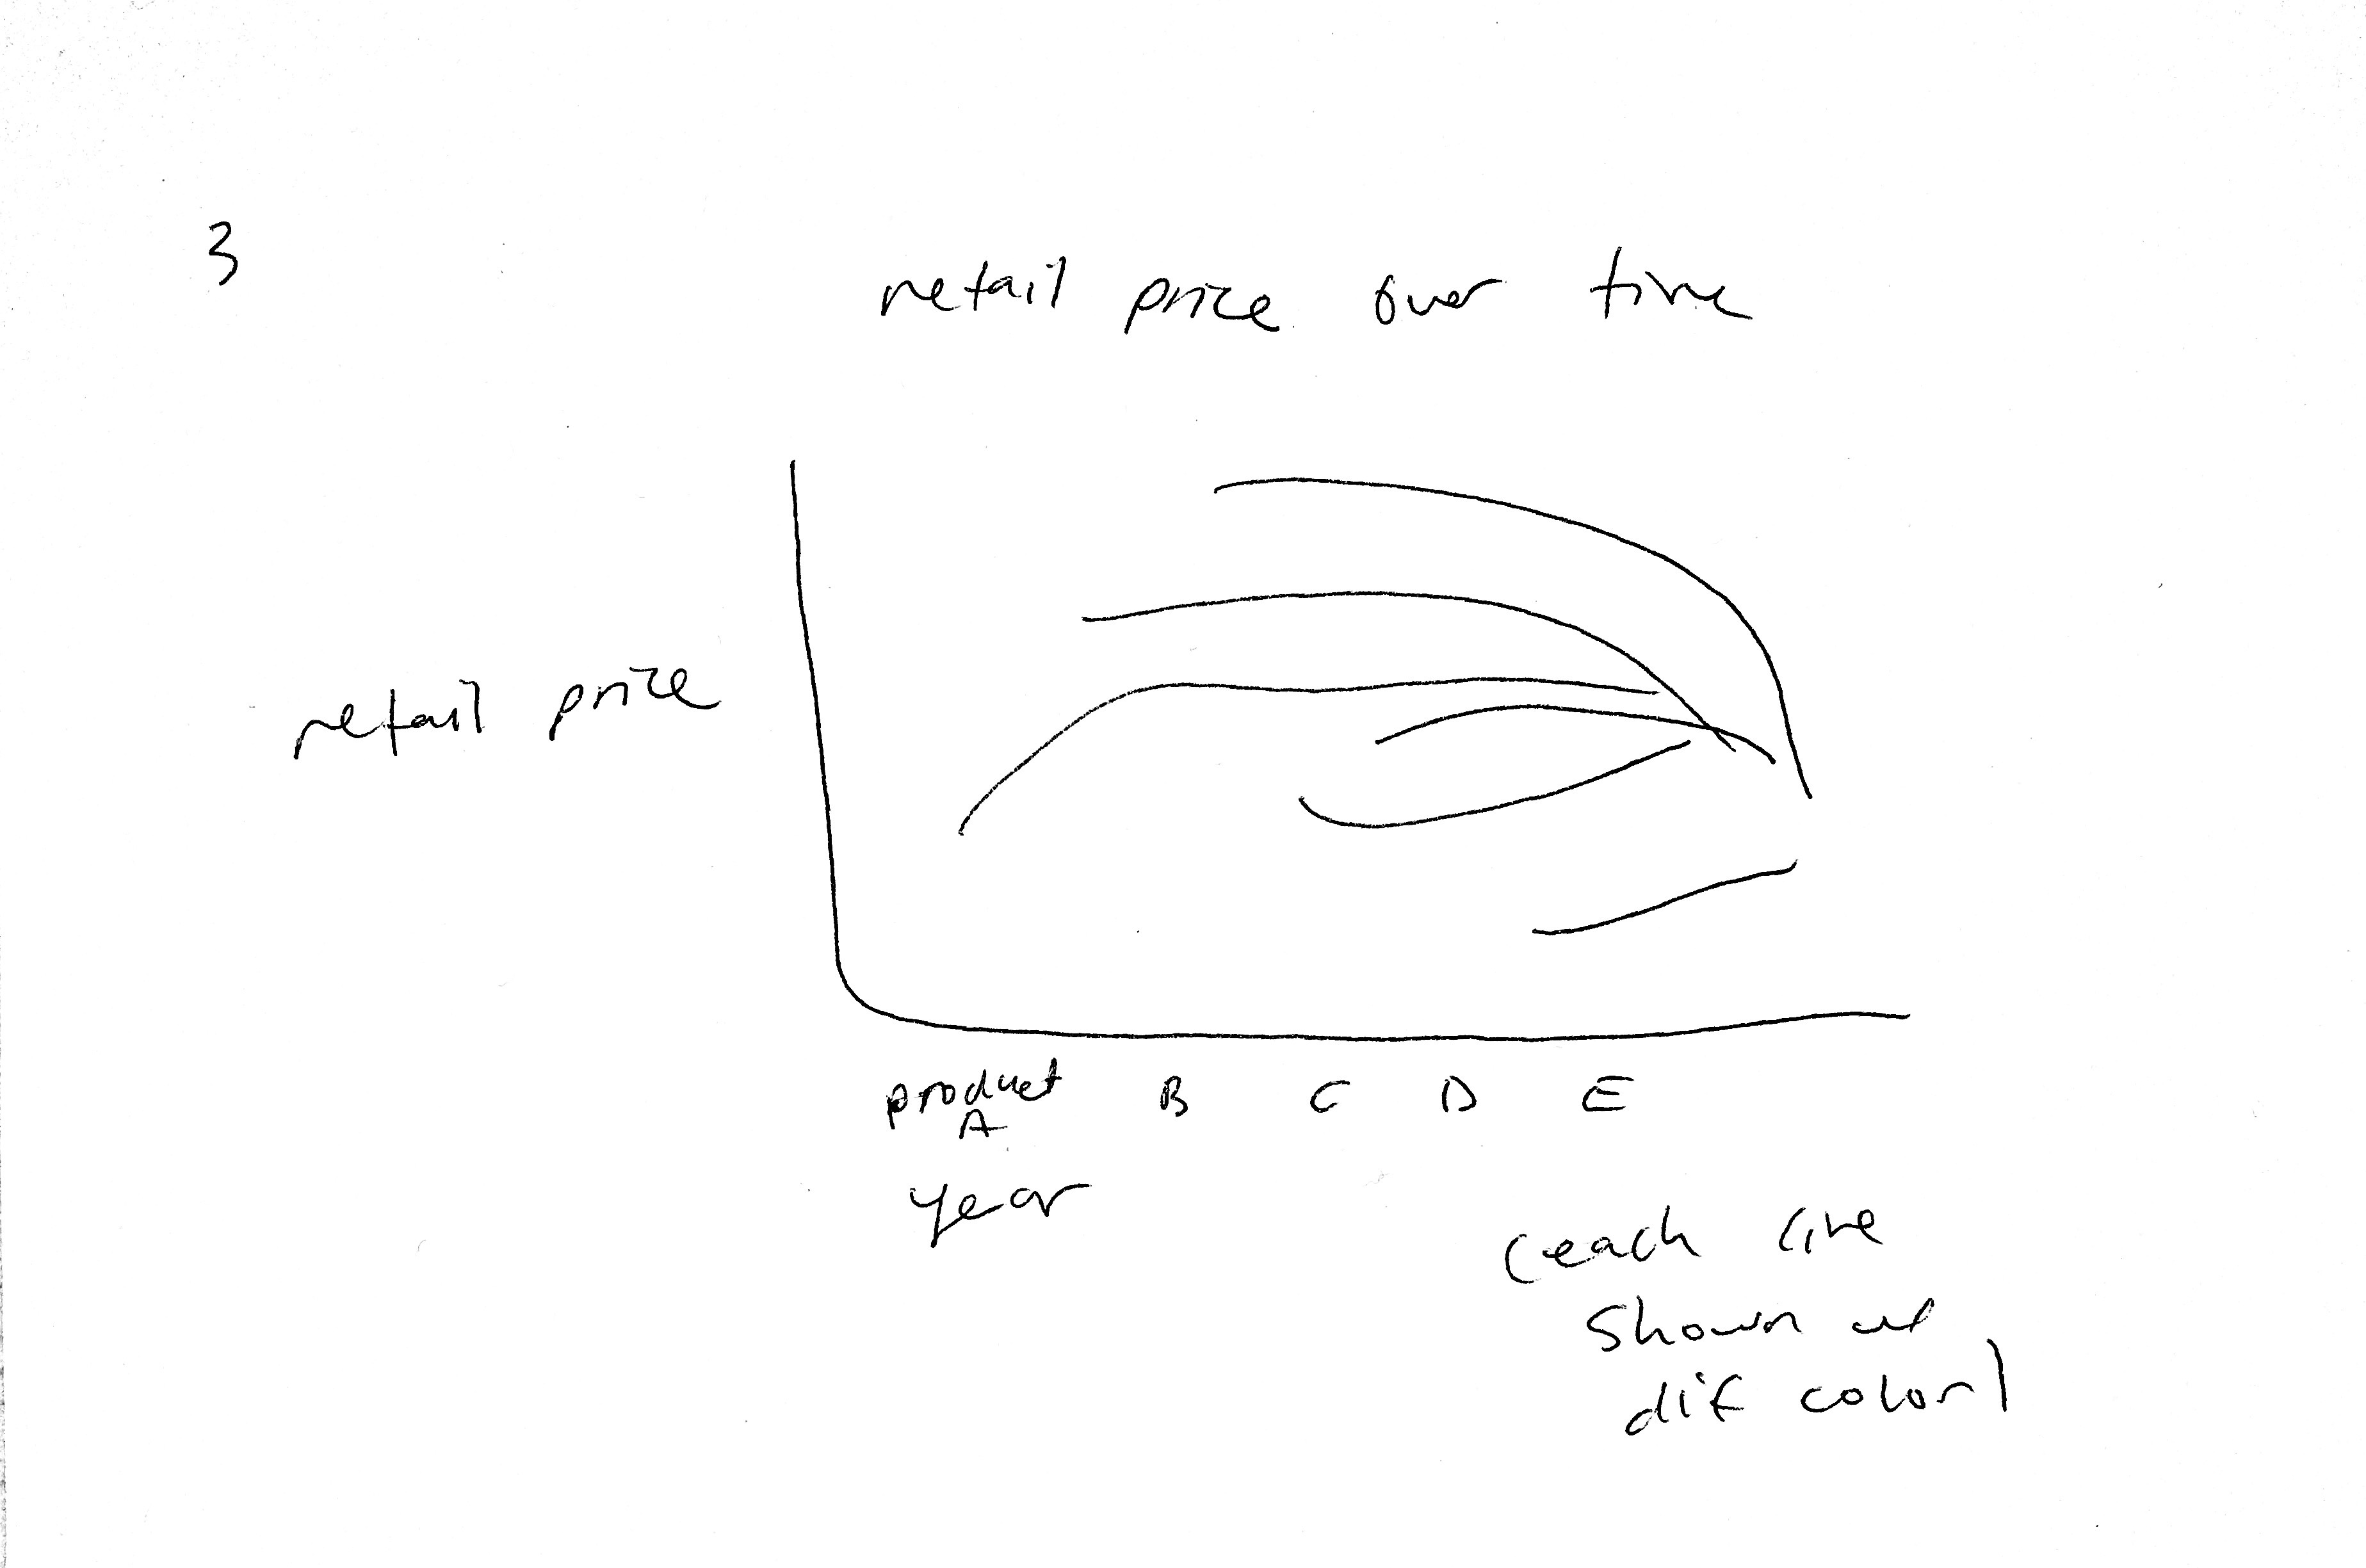 3
retail price over time
retail price
product B C D E
A
year
(each line
shown w/
dif color)